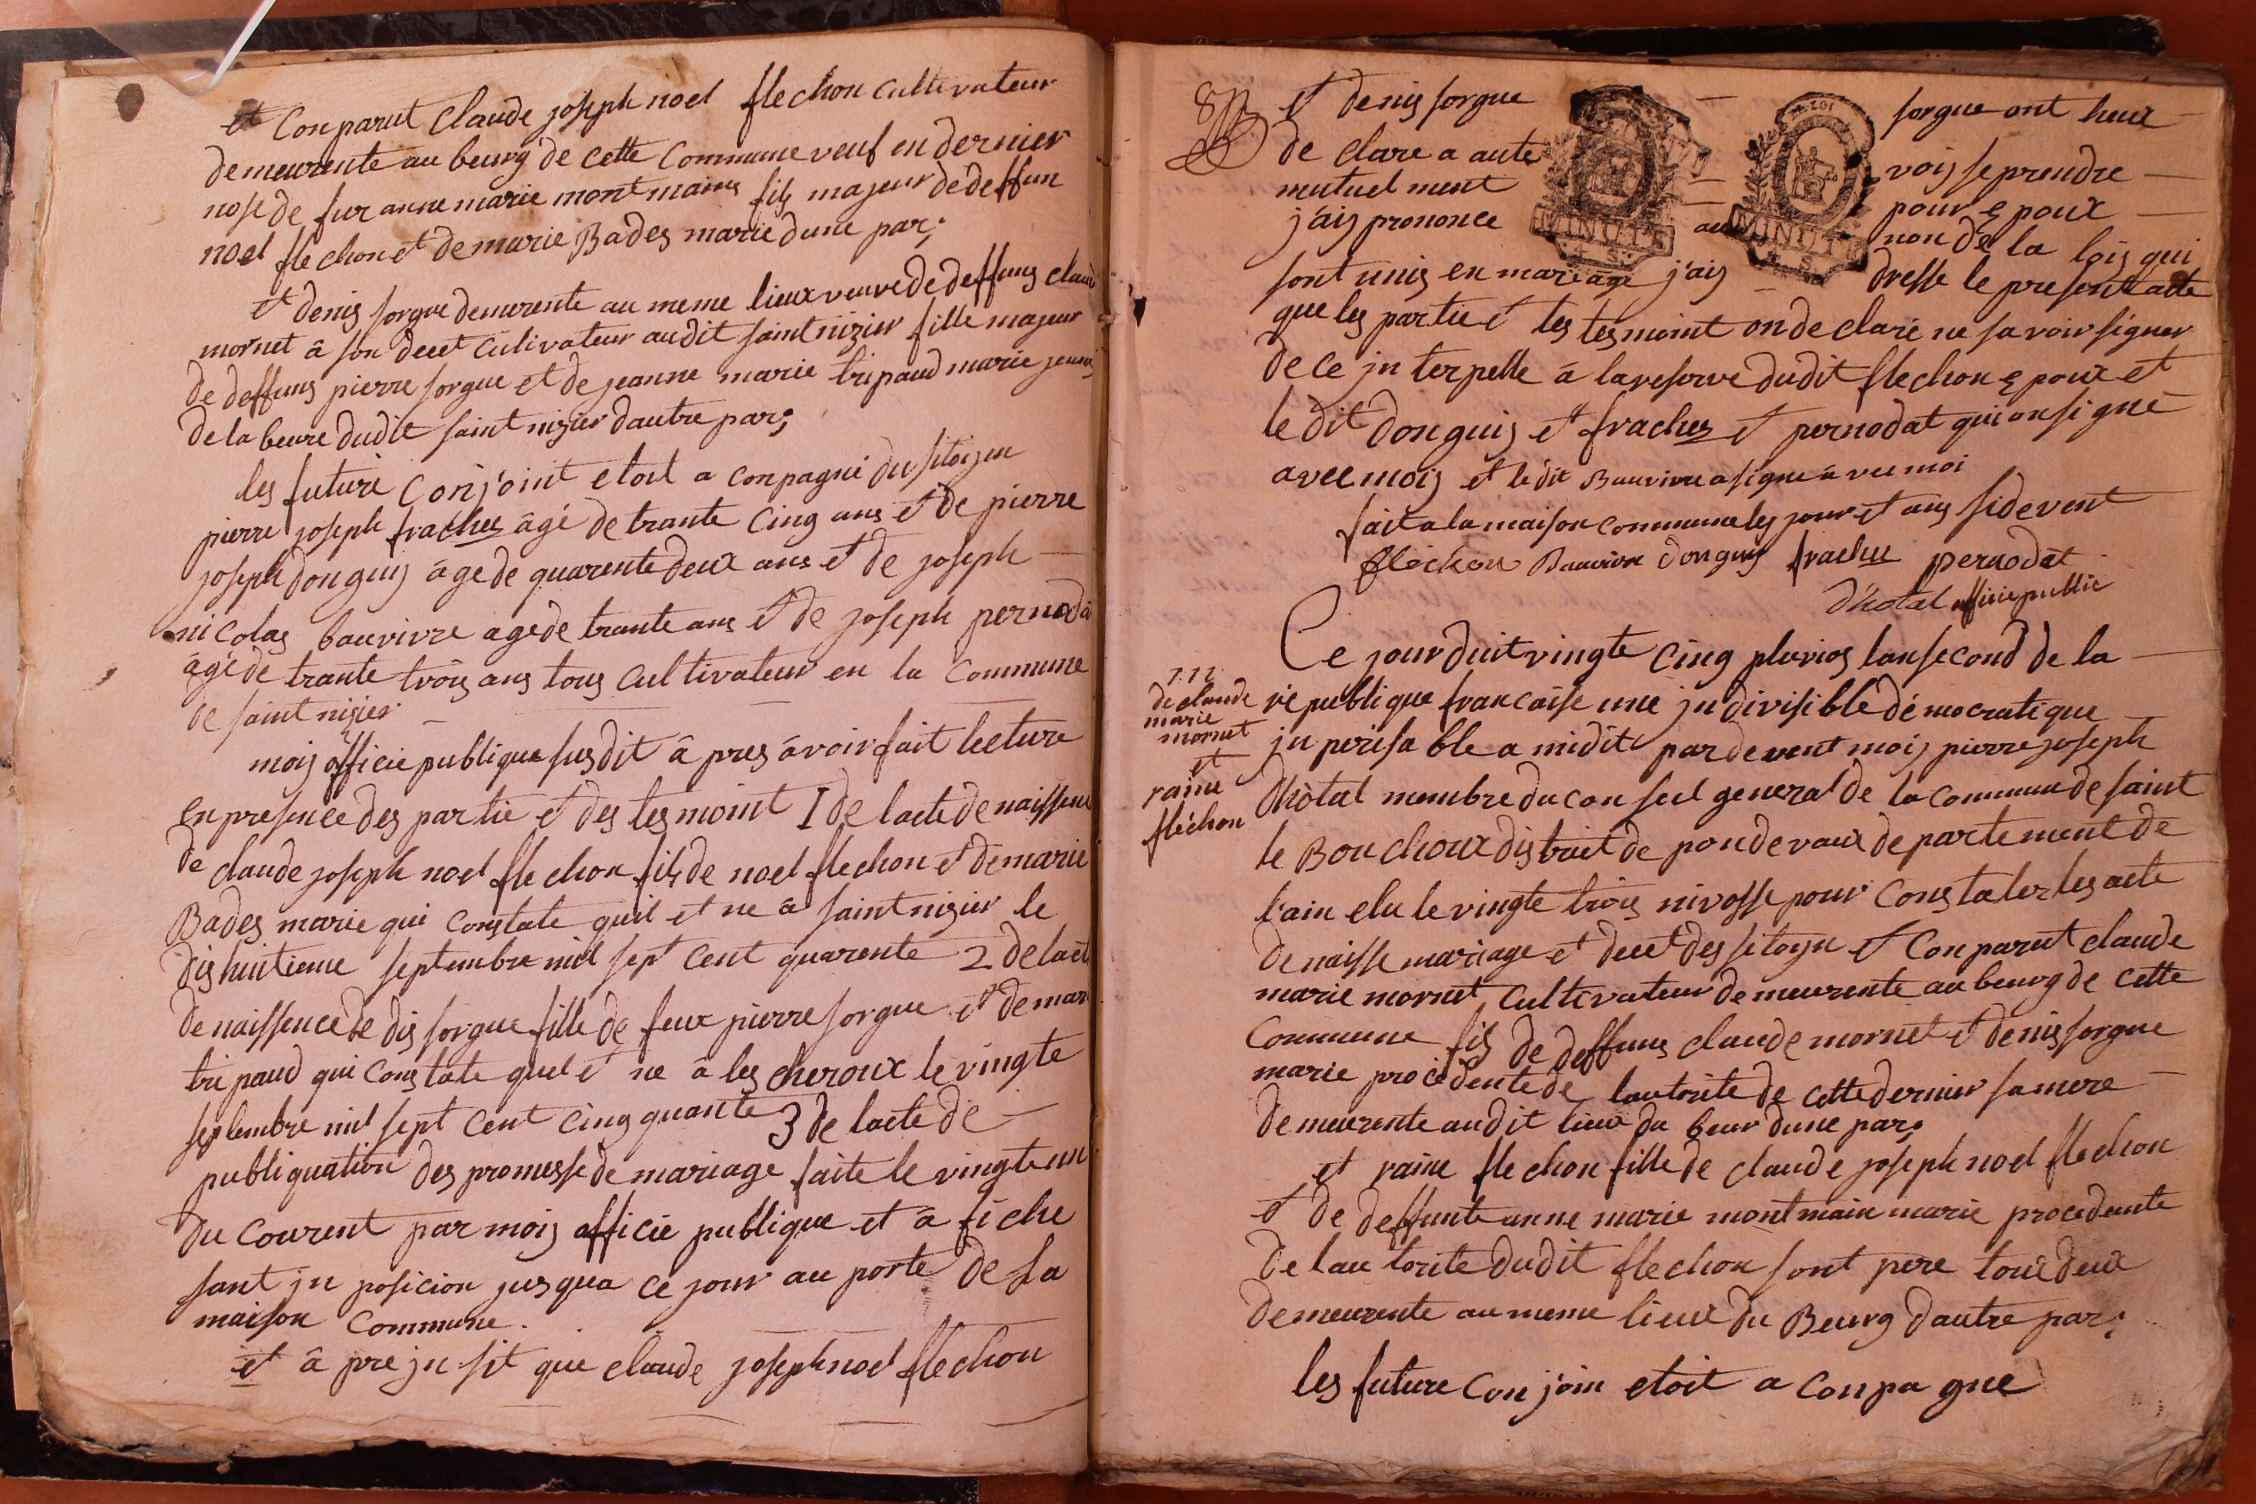 et Conparut Claude joseph noel flechon Cultivateur
demeurente au beurg de cette Commune veuf en dernier
nose de fur anne marie montmains fils majeur de deffun
noel flechon et de marie Bades marie dune par;
et denis sorgue demurente au meme lieux veuve de deffuns claude
mornet â son decet Cultivateur audit saint nizier fille majeur
de deffuns pierre sorgue et de jeanne marie tripaud marie
de la beure dudit saint nizier dautre par;
les futuré Conjoint etoit a conpagné du sitoyen
pierre joseph frachez âgé de trante Cinq ans et de pierre
joseph donguy âgé de quarente deux ans et de joseph
nicolas bauvivre agé de trante ans et de joseph pernoda
âgé de trante trôis ans tous Cultivateur en la Commune
de saint nizier
moij officié publique susdit â pres âvoir fait lecture
en presence des partié et des tesmoint I de lacte de naissence
de claude joseph noel flechon fils de noel flechon et de marie
Bades marie qui Constate quil et ne â saint nizier le
dis huitieme septembre mil sept Cent quarente 2 de lact
de naissence de dis sorgue fille de feux pierre sorgue et de mari
tripaud qui Constate quel et ne â les cheroux le vingte
septembre mil sept Cent Cinq quante 3 de lacte de
publiquation des promesse de mariage faite le vingte un
du courent par moij officié publique et â fiche
sant jn posicion jusqua ce jour au porte de la
maison Commune.
et â pre jn sit que claude joseph noel flechon
8
et denis sorgue sorgue ont heux
de clare a aute voix se prendre
mutuel ment pour epoux
j'aij prononce au non de la loij qui
sont unis en mariage j'aij dresse le present acte
que les partie et les tesmoint on de claré ne savoir signer
de ce jn terpelle â la reserve dudit flechon epoux et
le dit donguij et frachez et pernodat qui on signé
avec moij et le dit Bauvivre a signe avec moi
fait a la maison commune les jour et ans sidevent
flechon Bauvivre donguy frachez pernodat
d'hotal officié public
Ce jourduit vingte Cinq pluvios lan second de la
république francaise une jndivisible démocratique
jn perisable a midit par devent moij pierre joseph
Dhôtal membre du conseil general de la commune de saint
le Bouchoux distrait de pondevaux departement de
l'ain elu le vingte trois nivosse pour Constater les acte
de naisse mariage et decet des sitoyn et Conparut claude
marie mornet Cultivateur demeurente au beurg de cette
Commune fils de deffuns claude mornet et denis sorgue
marie procedente de lautorite de cette dernier sa mere
demeurente audit lieux du beur dune par;
et raine flechon fille de claude joseph noel flechon
et de deffunte anne marie montmain marie procedente
de lau torite dudit flechon sont pere tout deux
demeurente au meme lieux du Beurg dautre par;
les future Conjoin etoit a conpagne
de claude
marie
mornet
et
raine
fléchon